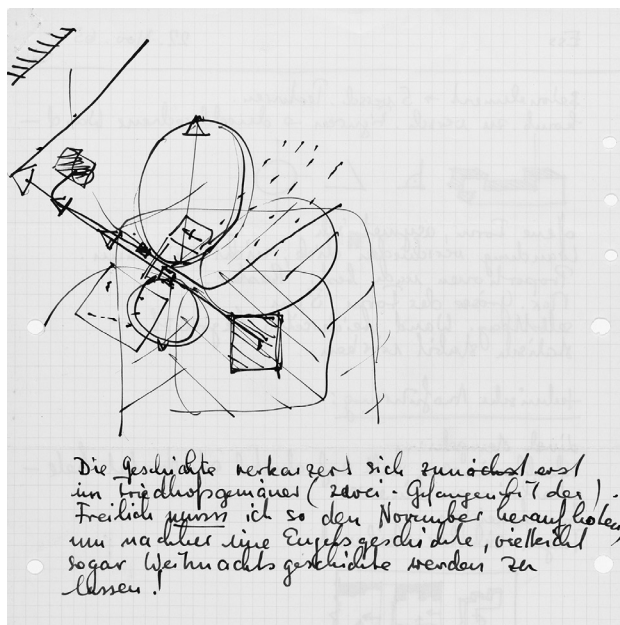 Die Geschichte verkerzert sich zunächst erst
im Friedhofsgemäuer (zwei - Gefangen
Freilich muss ich so den November heraufholen,
um nachher eine Engelsgeschichte, vielleicht
sogar Weihnachtsgeschichte werden zu
lassen.